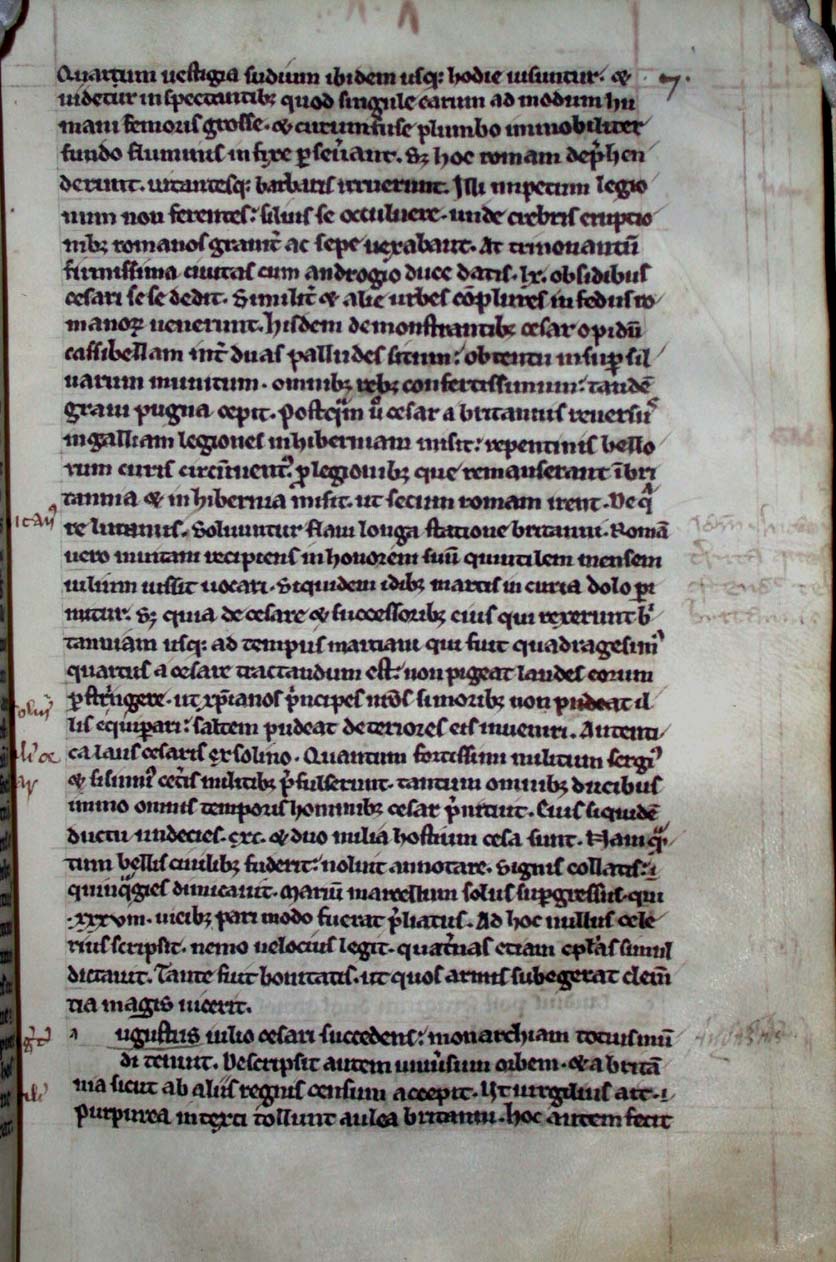 7.
Quarum uestigia sudium ibidem usq; hodie uisuntur. &
uidetur inspectantib; quod singule earum ad modum hu
mani femoris grosse. & circumfuse plumbo immobiliter
fundo fluminis infixe p̱seuerant. Sz hoc romani dep̄hen
derunt. uitantesq; barbaris irruerunt. Illi impetum legio
num non ferentes: siluis se occuluere. unde crebris eruptio
nib; romanos grauit̄ ac sepe uexabant. At trinouantū
firmissima ciuitas cum androgio duce datis .lx. obsidibus
cesari se se dedit. Similit̄ & alie urbes cōplures in fedus ro
manoꝝ uenerunt. hisdem demonstrantib; cesar opidū
cassibellani int̄ duas palludes situm: obtentu insup̱ sil
uarum munitum. omnib; reb; confertissimum: tandē
graui pugna cepit. Postq̄m ū cesar a britannis reuersus
in galliam legiones in hiberniam misit: repentinis bello
rum curis circūuentus p̱ legionib; que remanserant ī bri
tannia & in hibernia misit. ut secum romam irent. De q̄
re lucanus. Soluuntur flaui longa statione britanni. Romā
uero inuitam recipiens in honorem suū quintilem mensem
iulium iussit uocari. Siquidem idib; martis in curia dolo p̱i
mitur. Sz quia de cesare & successorib; eius qui rexerunt b̄
tanniam usq; ad tempus martiani qui fuit quadragesimus
quartus a cesare tractandum est: non pigeat laudes eorum
p̱string̱ere. ut xp̄ianos p̄ncipes nr̄os in morib; non pudeat il
lis equip̱ari: saltem pudeat deteriores eis inueniri. Autenti
ca laus cesaris ex solino. Quantum fortissimi militum sergius
& sisinnius cet̄is militib; p̄fulserunt. tantum omnib; ducibus
immo omnis temporis hominib; cesar p̄nituit. Eius siquidē
ductu undecies .cxc. & duo milia hostium cesa sunt. Nam q̄n
tum bellis ciuilib; fuderit: noluit annotare. Signis collatis: ī
quinq̄gies dimicauit. Marcū marcellum solus sup̱gressus. qui
.xxxviiii. uicib; pari modo fuerat p̄liatus. Ad hoc nullus cele
rius scripsit. nemo uelocius legit. quat̄nas etiam ep̄las simul
dictauit. Tante fuit bonitatis. ut quos armis subegerat clem̄
tia magis uicerit.
a ugustus iulio cesari succedens: monarchiam totius mū
di tenuit. Descripsit autem uniu̇sum orbem. & a britā
nia sicut ab aliis regnis censum accepit. Ut uirgilius ait. i
Purpurea intexti tollunt aulea britanni. hoc autem fecit